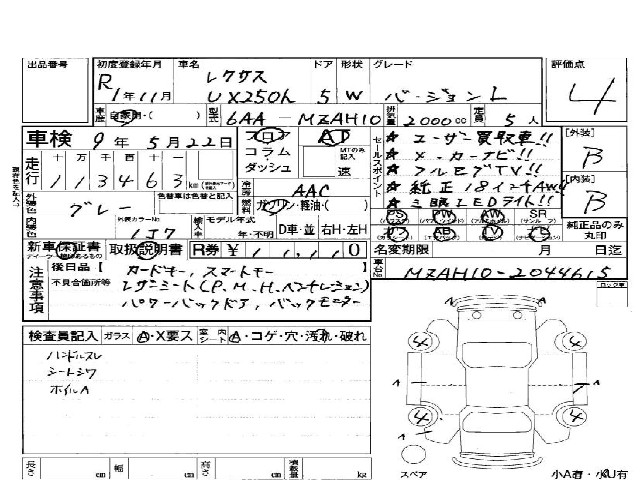 出品番号 初度登録年月 車名 ドア 形状 グレード 評価点
R 1年11月 レクサス UX250h 5 W バージョンL 4
車歴 自家用・( ) 型式 6AA-MZAH10 排気量 2000 cc 定員 5人
車検 9年5月22日 フロア コラム・ダッシュ AT MTのみ記入 速
走行 十 万 千 百 十 一
113463 km
冷房 AAC
燃料 ガソリン・軽油・( )
セールスポイント
★ユーザー買取車!!
★メーカーナビ!!
★フルセグTV!!
★純正18インチAW
★三眼LEDライト!!
[外装] B
[内装] B
外装色 グレー 色替車は色替と記入
内装色 外装カラーNo 1J7 輸入車 モデル年式 年・不明 D車・並 右H・左H
PS PW AW SR
純正品のみ丸印
新車保証書 取扱説明書 R券 ¥ 0
名変期限 月 日迄
車台No MZAH10-2044615
注意事項 後日品 [ カードキー、スマートキー
不具合箇所等 レザーシート(P,M,H,ベンチレーション)
パワーバックドア、バックモニター
ロック車
検査員記入 ガラス A・X要ス 室内シート A・コゲ・穴・汚れ・破れ
ハンドルスレ
シートシワ
ホイルA
4 4 A A 4 4 A
長さ cm 幅 cm 高さ cm 積載量 kg
スペア 小A有・小U有